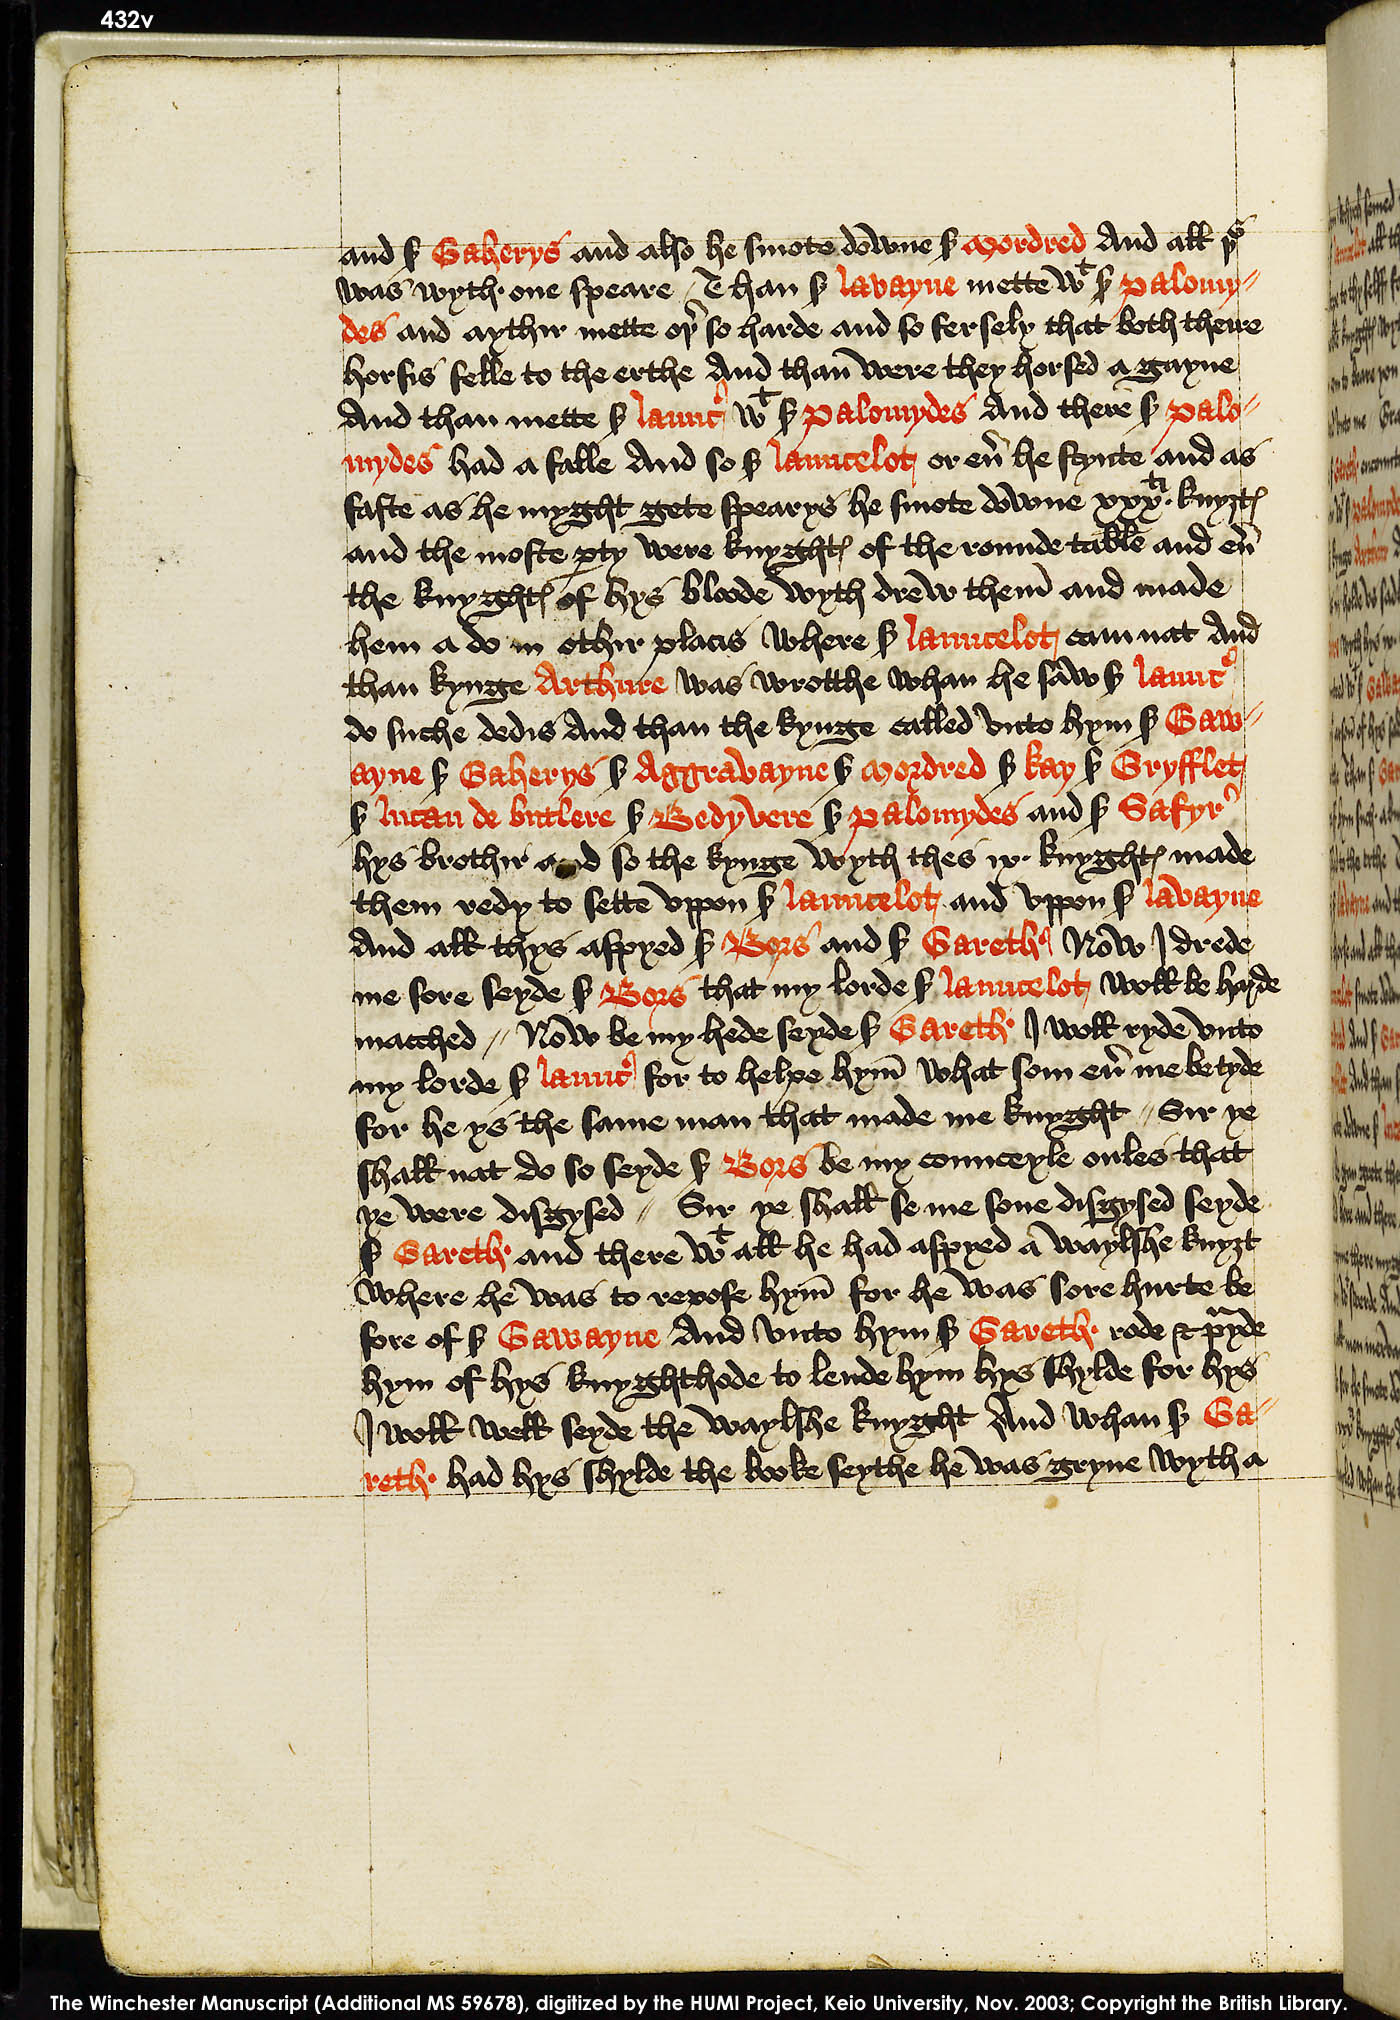 432v
and ẜ Gaherys and also he smote downe ẜ Mordred And all yͥs
was wyth one speare // Than ẜ Lavayne mette wᵗ ẜ Palomy//
des and aythir mette oþ̉ so harde and so fersely that both theire
horsis felle to the erthe And than̄ were they horsed a gayne
And than mette ẜ Launcͦ wᵗ ẜ Palomydes And there ẜ Palo//
mydes had a falle And so ẜ Launcelot or eṽ he stynte and as
faste as he myght gete spearys he smote downe xxxᵗⁱ. knyȝtꝭ
and the moste ꝑty were knyghtꝭ of the rounde table and eṽ
the knyghtꝭ of hys bloode wyth drew them̄ and made
hem a do in othir placis where ẜ Launcelot cam nat And
than kynge Arthure was wrotthe whan he saw ẜ Launcͦ
do suche dedis And than the kynge called vnto hym ẜ Gaw//
ayne ẜ Gaherys ẜ Aggravayne ẜ Mordred ẜ Kay ẜ Gryfflet
ẜ Lucan de butlere ẜ Bedyvere ẜ Palomydes and ẜ Safyr
hys brothir and so the kynge wyth thes ix. knyghtꝭ made
them redy to sette vppon ẜ Launcelot and vppon ẜ Lavayne
And all thys aspyed ẜ Bors and ẜ Gareth Now I drede
me sore seyde ẜ Bors that my lorde ẜ Launcelot woll be harde
macched // Now be my hede seyde ẜ Gareth I woll ryde vnto
my lorde ẜ Launcͦ for to helpe hym̄ what som eṽ me betyde
for he ys the same man that made me knyght // Sir ye
shall nat do so seyde ẜ Bors be my counceyle onles that
ye were disgysed // Sir ye shall se me sone disgysed seyde
ẜ Gareth and there wᵗ all he had aspyed a waylshe knyȝt
where he was to repose hym̄ for he was sore hurte be
fore of ẜ Gawayne And vnto hym ẜ Gareth rode & pᵃyde
hym of hys knyghthode to lende hym hys shylde for hys
I woll well seyde the waylshe knyght And whan ẜ Ga//
reth had hys shylde the booke seythe he was gryne wyth a
The Winchester Manuscript (Additional MS 59678), digitized by the HUMI Project, Keio University, Nov. 2003; Copyright the British Library.